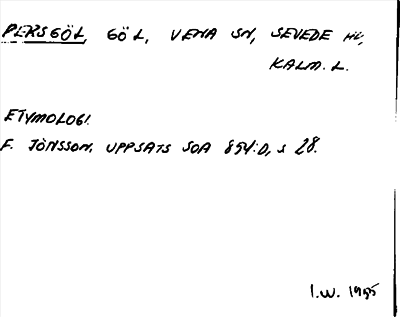 PERSGÖL, GÖL, VENA SN, SEVEDE HD,
KALM. L.
ETYMOLOGI.
F. JÖNSSON, UPPSATS SOA 894:D, S 28.
I.W. 1985